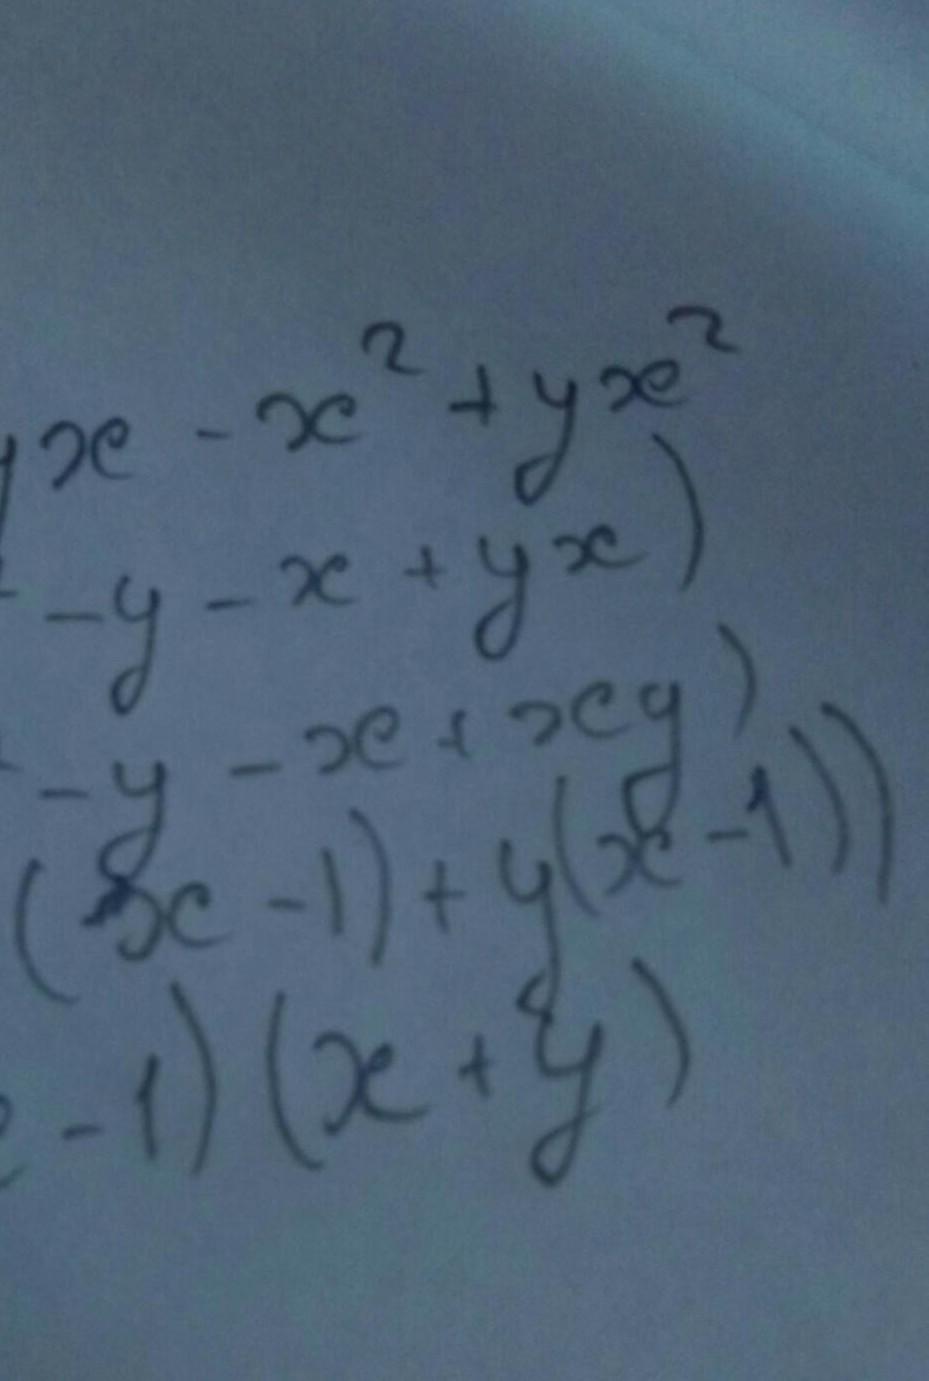 yx - x² + yx²
- y - x + yx)
- y - x + xy)
(x - 1) + y(x - 1))
- 1)(x + y)